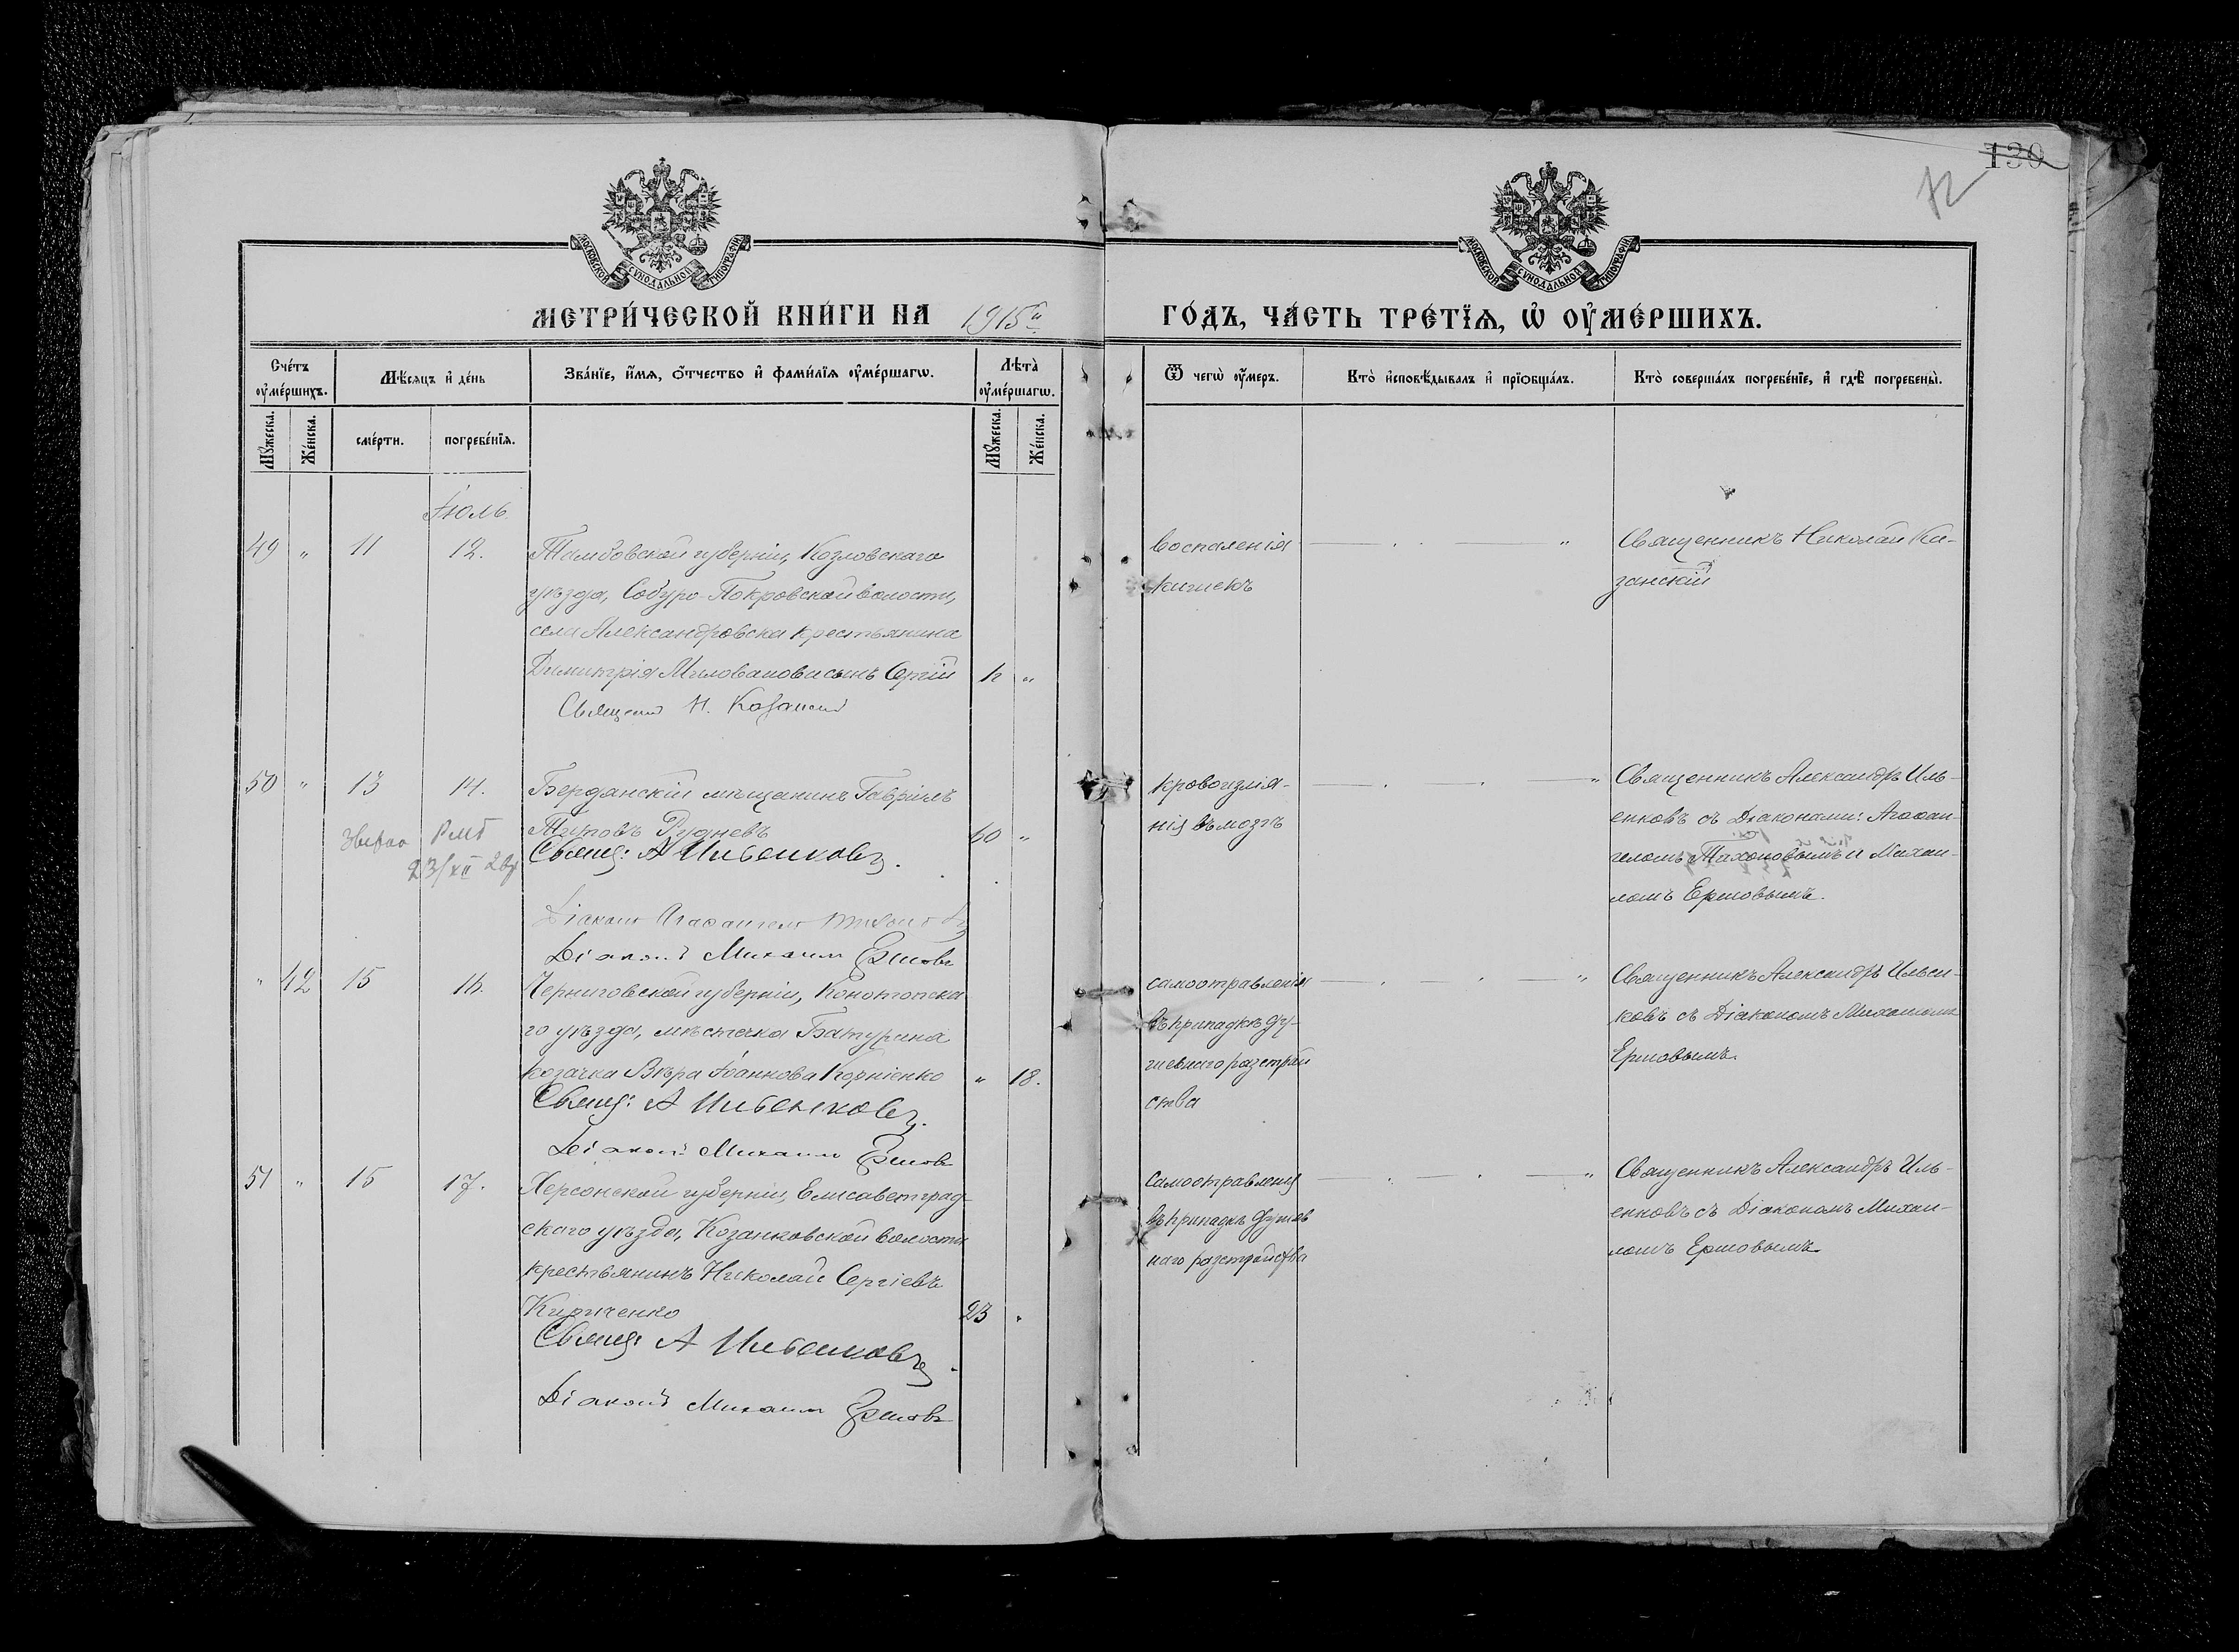 130
12
МОСКОВСКОЙ СѴНОДАЛЬНОЙ ТИПОГРАФІИ
МОСКОВСКОЙ СѴНОДАЛЬНОЙ ТИПОГРАФІИ
МЕТРИ́ЧЕСКОЙ КНИ́ГИ НА 1915й ГО́ДЪ, ЧА́СТЬ ТРЕ́ТЇѦ, Ѡ҆ ОУ҆МЕ́РШИХЪ.
Сче́тъ оу҆ме́ршихъ.
Мѣ́сяцъ и҆ де́нь
Зва́нїе, и҆́мѧ, ѻ҆́тчество и҆ фами́лїѧ оу҆ме́ршагѡ.
Лѣта̀ оу҆ме́ршагѡ.
Ѿ чегѡ̀ оу҆́меръ.
Кто̀ и҆сповѣ́дывалъ и҆ прїѻбща́лъ.
Кто̀ соверша́лъ погребе́нїе, и҆ гдѣ̀ погребены̀.
Мꙋ́жеска.
Же́нска.
сме́рти.
погребе́нїѧ.
Мꙋ́жеска.
Же́нска.
Іюль
49 " 11 12. Тамбовской губерніи, Козловскаго
уѣзда, Собуро-Покровской волости,
села Александровска крестьянина
Димитрія Милованова сынъ Сергій "
Священ Н. Казанскій
воспаленія
кишекъ
Священникъ Николай Ка-
занскій
50 " 13 14. Бердянскій мѣщанинъ Гавріилъ
Титовъ Рудневъ 60 "
23/XII
Свящ: А Ильенковъ.
Діаконъ Агаѳангелъ
Діаконъ Михаилъ Ершовъ
кровоизлія-
нія въ мозгъ
Священникъ Александръ Иль-
енковъ съ Діаконами: Агаѳан-
геломъ Тихоновымъ и Михаи-
ломъ Ершовымъ.
" 42 15 16. Черниговской губерніи, Конотопска
го уѣзда, мѣстечка Батурина
козачка Вѣра Іоаннова Корніенко " 18.
Свящ: А Ильенковъ.
Діаконъ Михаилъ Ершовъ
самоотравленія
въ припадкѣ ду-
шевнаго разстрой
ства
Священникъ Александръ Ильен-
ковъ съ Діакономъ Михаиломъ
Ершовымъ.
51 " 15 17. Херсонской губерніи, Елисаветград-
скаго уѣзда, Козанковской волости
крестьянинъ Николай Сергіевъ
Кириченко 23 "
Свящ: А Ильенковъ.
Діаконъ Михаилъ Ершовъ
Самоотравленія
въ припадкѣ душев
наго разстройства
Священникъ Александръ Иль-
енковъ съ Діакономъ Михаи-
ломъ Ершовымъ